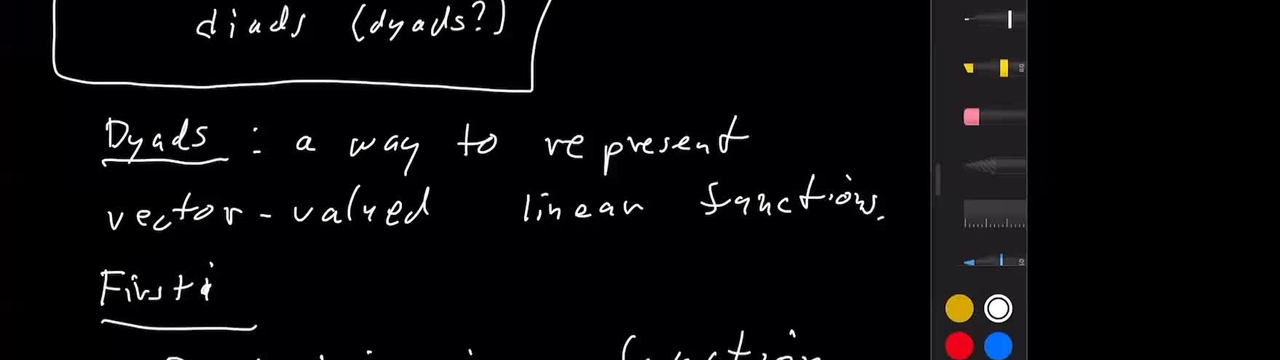 diads (dyads?)
Dyads : a way to represent
vector-valued linear functions.
First:
function